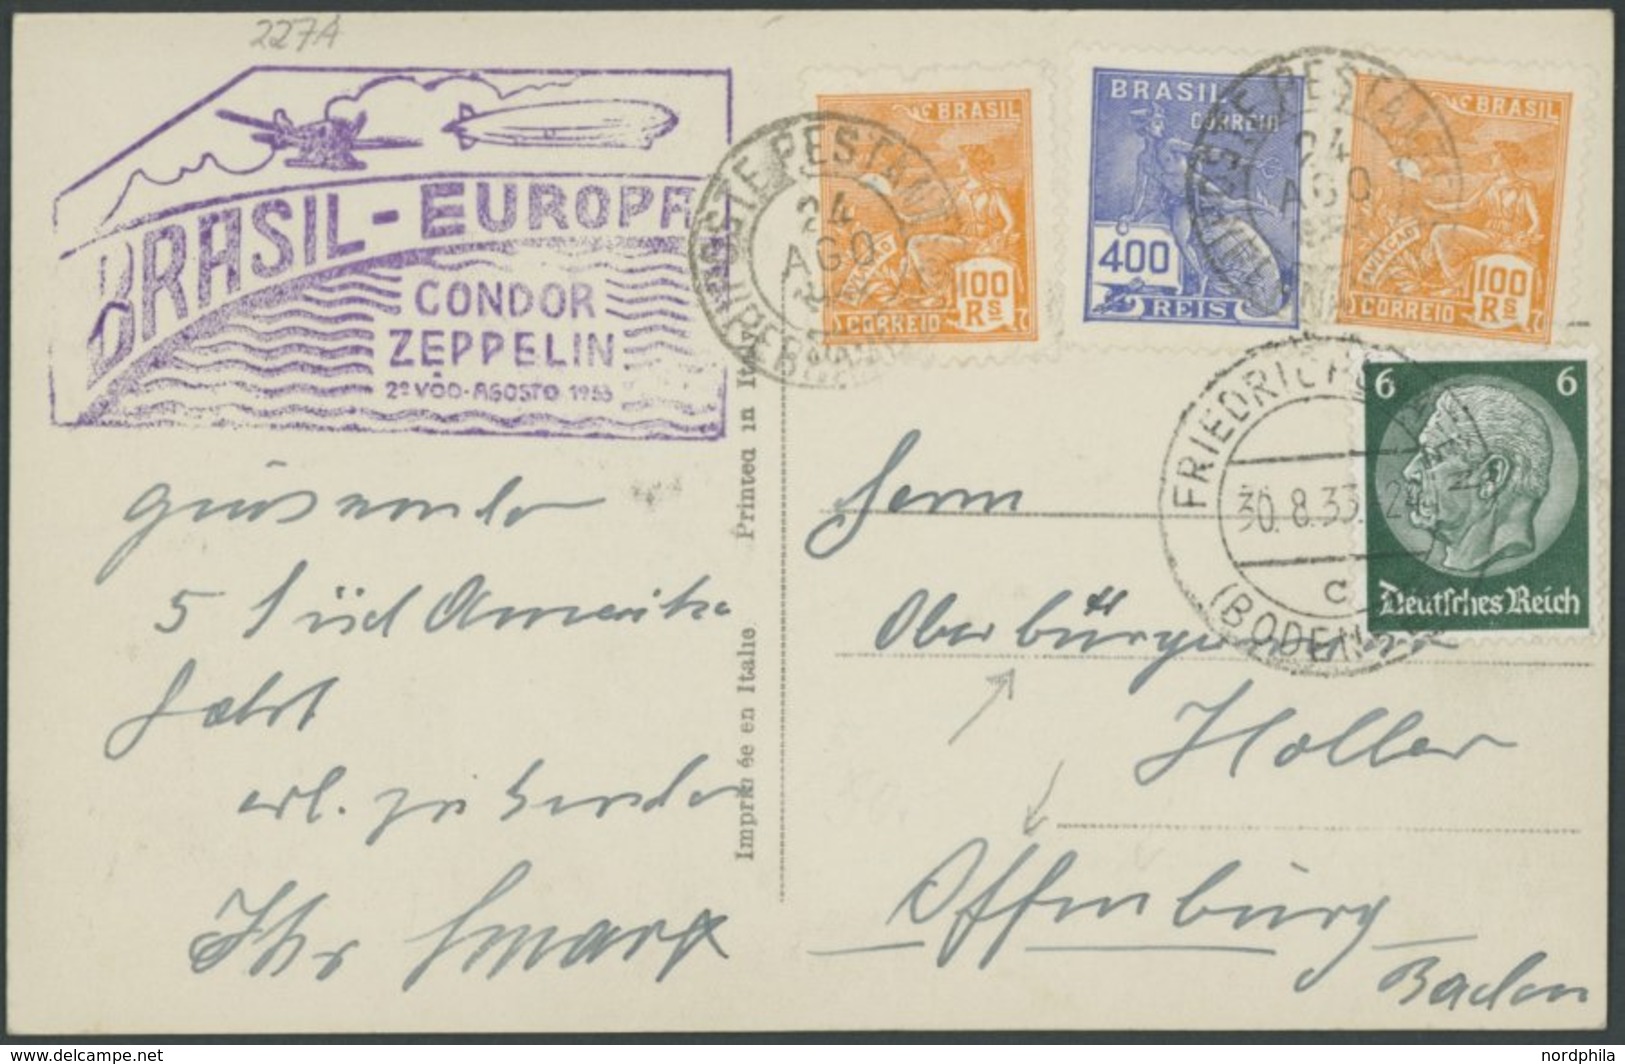 227A
BRASIL - EUROPA
CONDOR
ZEPPELIN
2º VÔO - AGOSTO 1933
POSTE RESTANTE
24
AGO
BRASIL
AVIAÇÃO
100
Rs
CORREIO
BRASIL
CORREIO
400
REIS
POSTE RESTANTE
24
AGO
BRASIL
AVIAÇÃO
100
Rs
CORREIO
FRIEDRICHSHAFEN
30.8.33.
c
(BODENSEE)
6 6
Deutsches Reich
Printed in Italy
Imprimée en Italie
5 Süd Amerika
Fahrt
erl. zu senden
Ihr
Herrn
Oberbürgermeister
Holler
Offenburg
Baden
nordphila